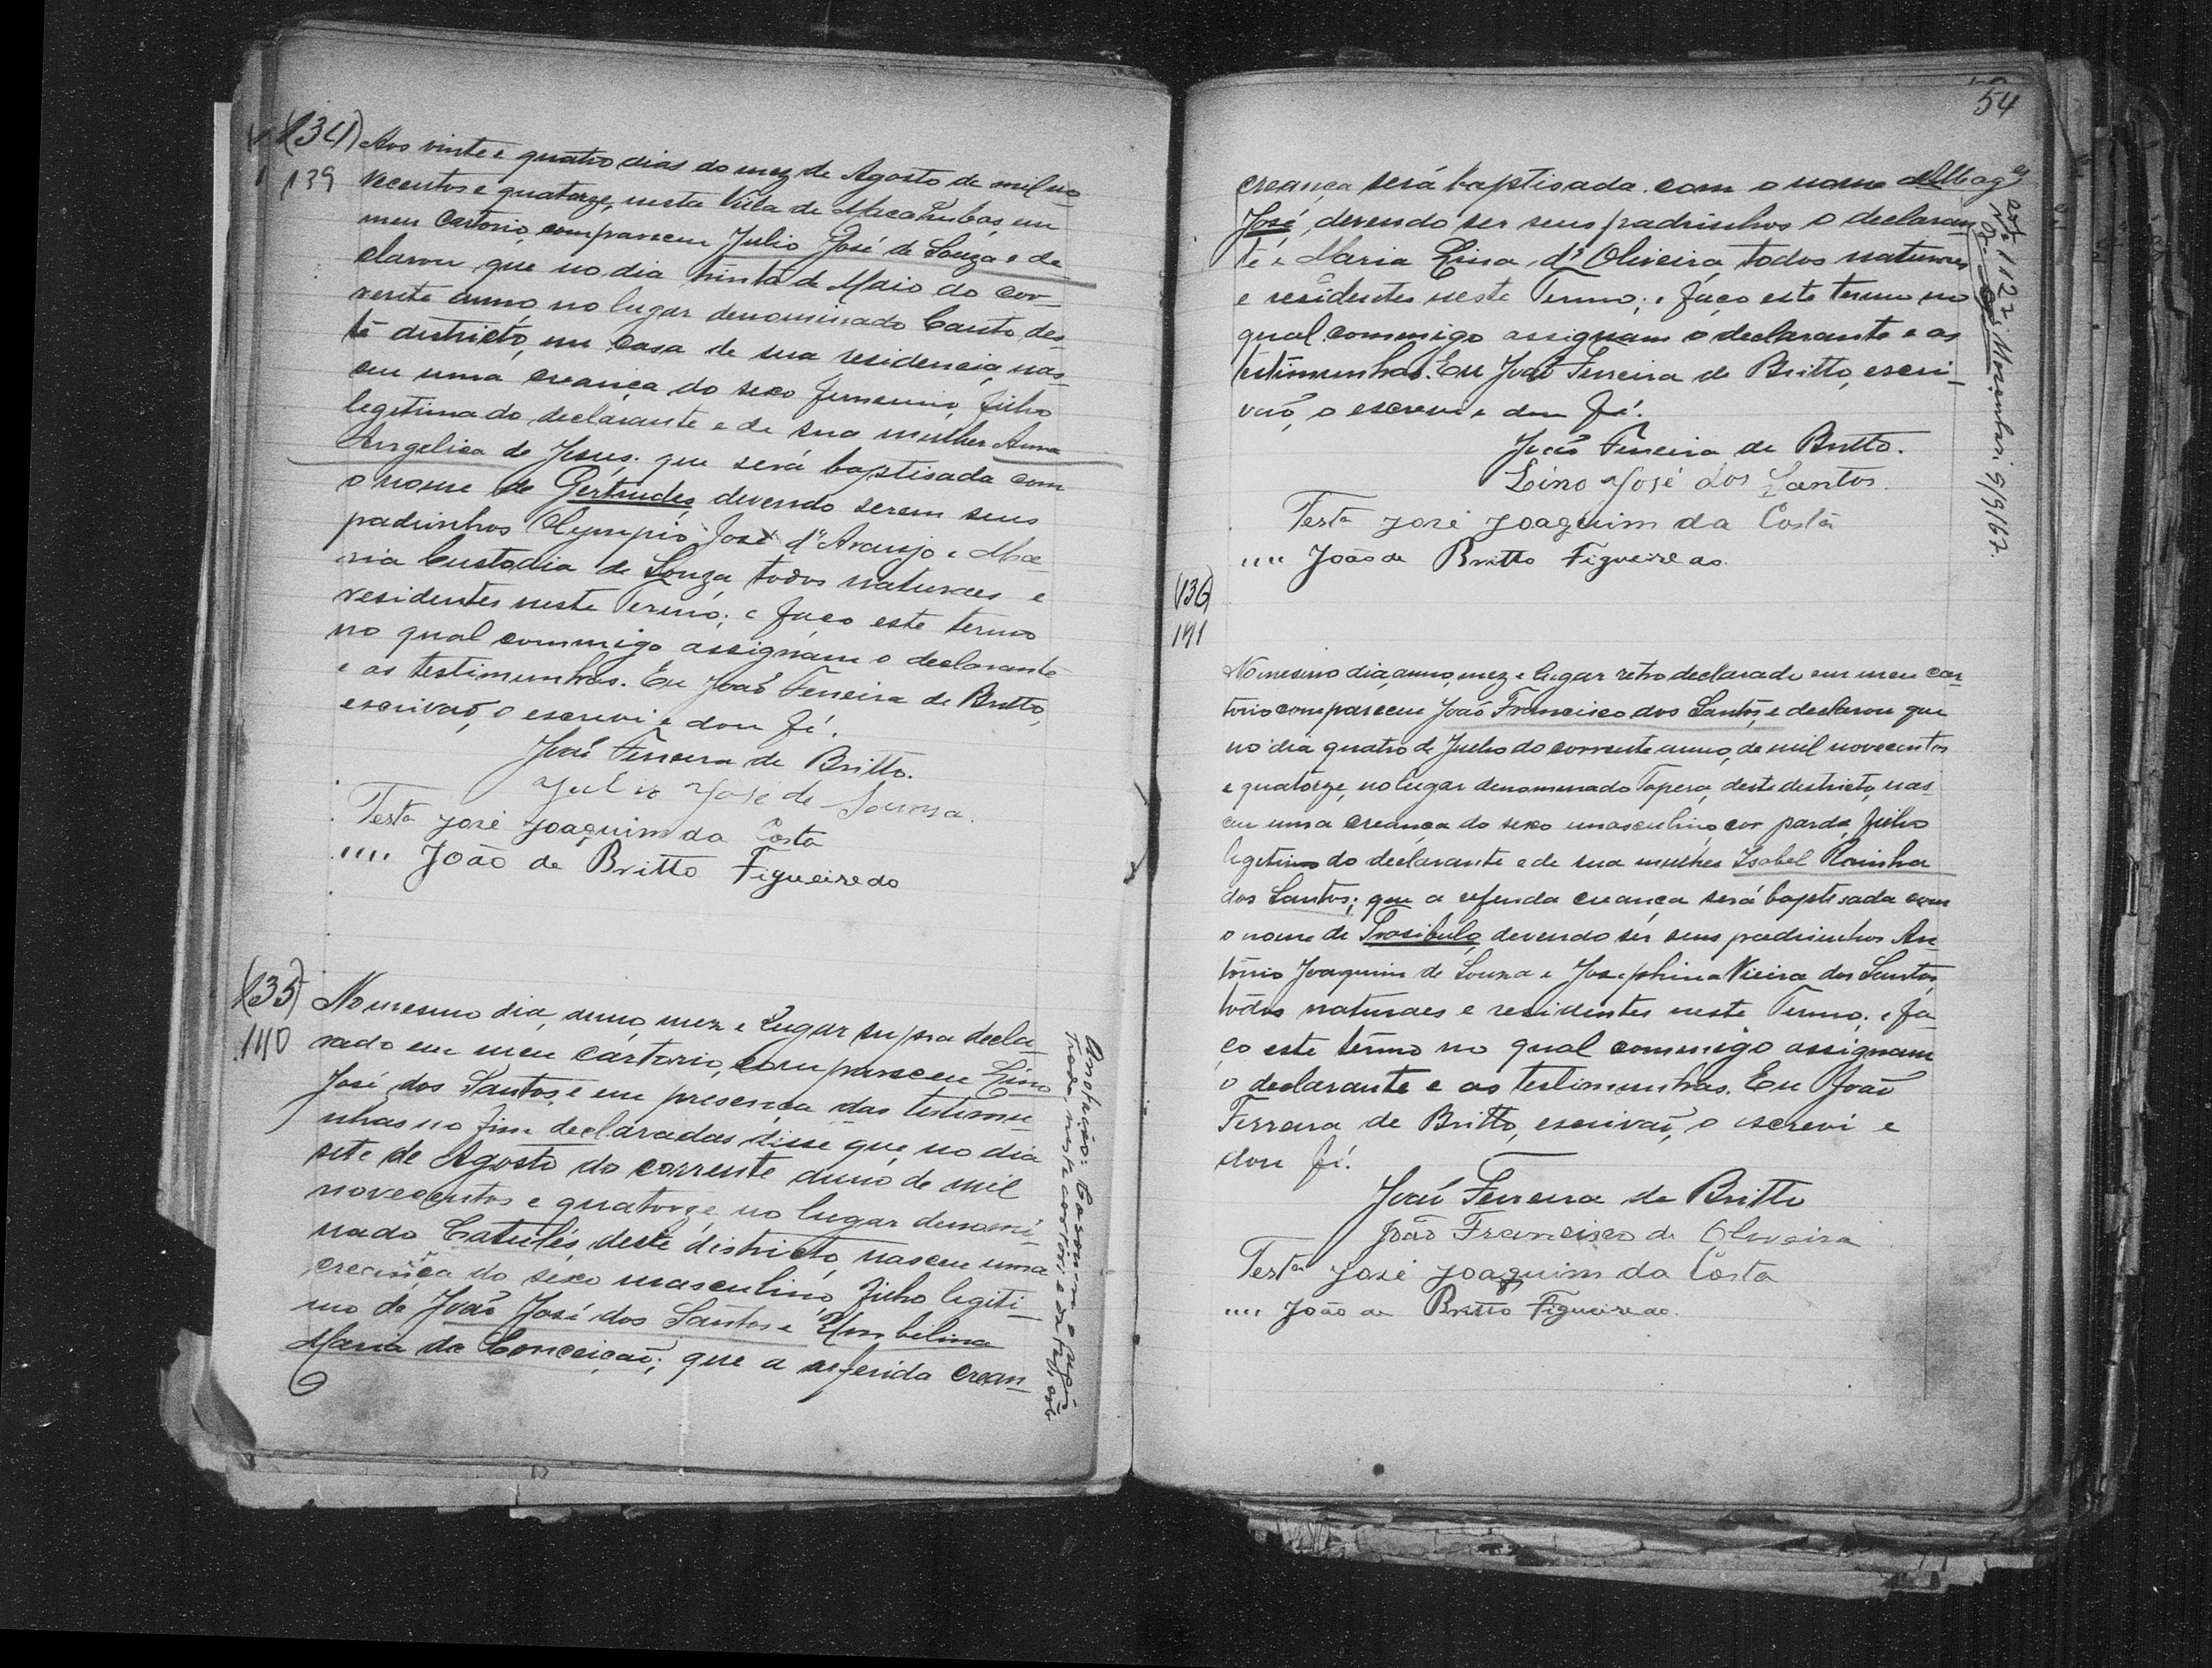 (134)
139
Aos vinte e quatro dias do mez de Agosto de mil no-
vecentos e quatorze, nesta Villa de Macahubas, em
meu Cartorio, compareceu Julio José de Souza e de
clarou que no dia trinta de Maio do cor-
rente anno, no lugar denominado Canto des-
te districto, em casa de sua residencia, nas-
ceu uma creança do sexo femenino, filha
legitima do declarante e de sua mulher Anna
Angelica de Jesus. que será baptisada com
o nome de Gertrudes, devendo serem seus
padrinhos Olympio José d'Araujo e Ma-
ria Custodia de Souza, todos naturaes e
residentes neste Termo; e faço este termo
no qual commigo assignam o declarante
e as testimunhas. Eu João Ferreira de Britto,
escrivaõ, o escrevi e dou fé.
João Ferreira de Britto.
Julio José de Sousa.
Testa José Joaquim da Costa
"" João de Britto Figueiredo
(135)
140
No mesmo dia, anno, mez e lugar supra decla-
rado em meu cartorio, compareceu Lino
José dos Santos, e em presença das testimu-
nhas no fim declaradas, disse que no dia
sete de Agosto do corrente anno de mil
novecentos e quatorze no lugar denomi-
nado Catulés, deste districto, nasceu uma
creança do sexo masculino, filho legiti-
mo de João José dos Santos e Umbelina
Maria da Conceição; que a referida crean-
Anotação: Casou-se
neste cartorio
54
creança será baptisada com o nome de
José, devendo ser seus padrinhos o declaran-
te e Maria Lina d' Oliveira, todos naturaes
e residentes neste Termo; e faço este termo no
qual commigo assignam o declarante e as
testimunhas. Eu João Ferreira de Britto, escri-
vaõ, o escrevi e dou fé.
João Ferreira de Britto.
Lino José dos Santos.
Testa José Joaquim da Costa
"" João de Britto Figueiredo.
9/9/67.
(136)
141
No mesmo dia, anno, mez e lugar retro declarado em meu car-
torio compareceu João Francisco dos Santos, e declarou que
no dia quatro de Julho do corrente anno, de mil novecentos
e quatorze, no lugar denominado Tapera, deste districto, nas-
ceu uma creança do sexo masculino, cor parda, filho
legitimo do declarante e de sua mulher Isabel Rainha
dos Santos; que a referida creança será baptisada com
o nome de Trasibulo, devendo ser seus padrinhos An-
tonio Joaquim de Souza e Josephina Vieira dos Santos,
todos naturaes e residentes neste Termo; e fa-
ço este termo no qual commigo assignam
o declarante e as testimunhas. Eu João
Ferreira de Britto, escrivaõ, o escrevi e
dou fé.
João Ferreira de Britto
João Francisco de Oliveira
Testa José Joaquim da Costa
"" João de Britto Figueiredo.